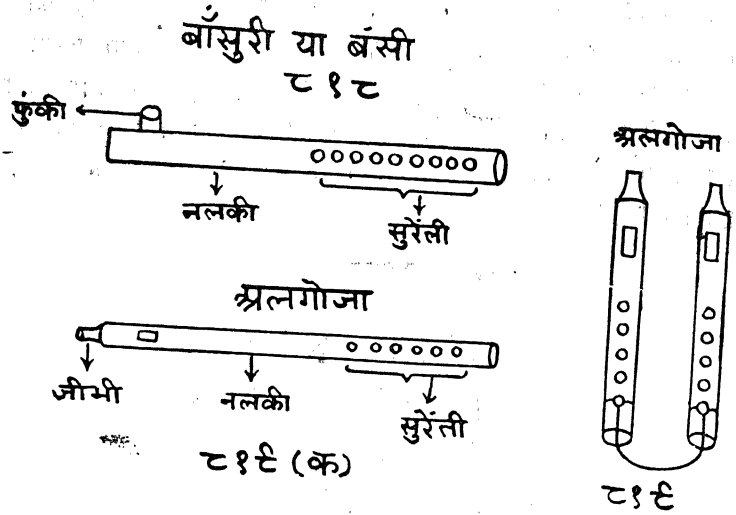 बाँसुरी या बंसी
८१८
फुंकी
नलकी
सुरेंती
अलगोजा
जीभी
नलकी
सुरेंती
८१९ (क)
अलगोजा
८१९